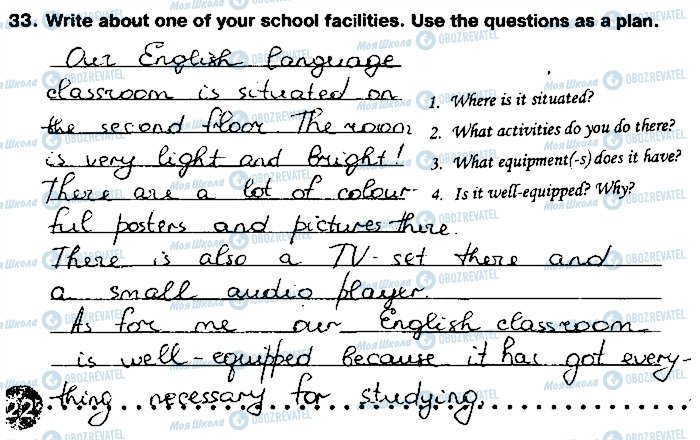 33. Write about one of your school facilities. Use the questions as a plan.
Our English language
classroom is situated on
the second floor. The room
is very light and bright!
There are a lot of colour-
ful posters and pictures there.
There is also a TV-set there and
a small audio player.
As for me our English classroom
is well-equipped because it has got every-
thing necessary for studying.
1. Where is it situated?
2. What activities do you do there?
3. What equipment(-s) does it have?
4. Is it well-equipped? Why?
22
Моя Школа OBOZREVATEL